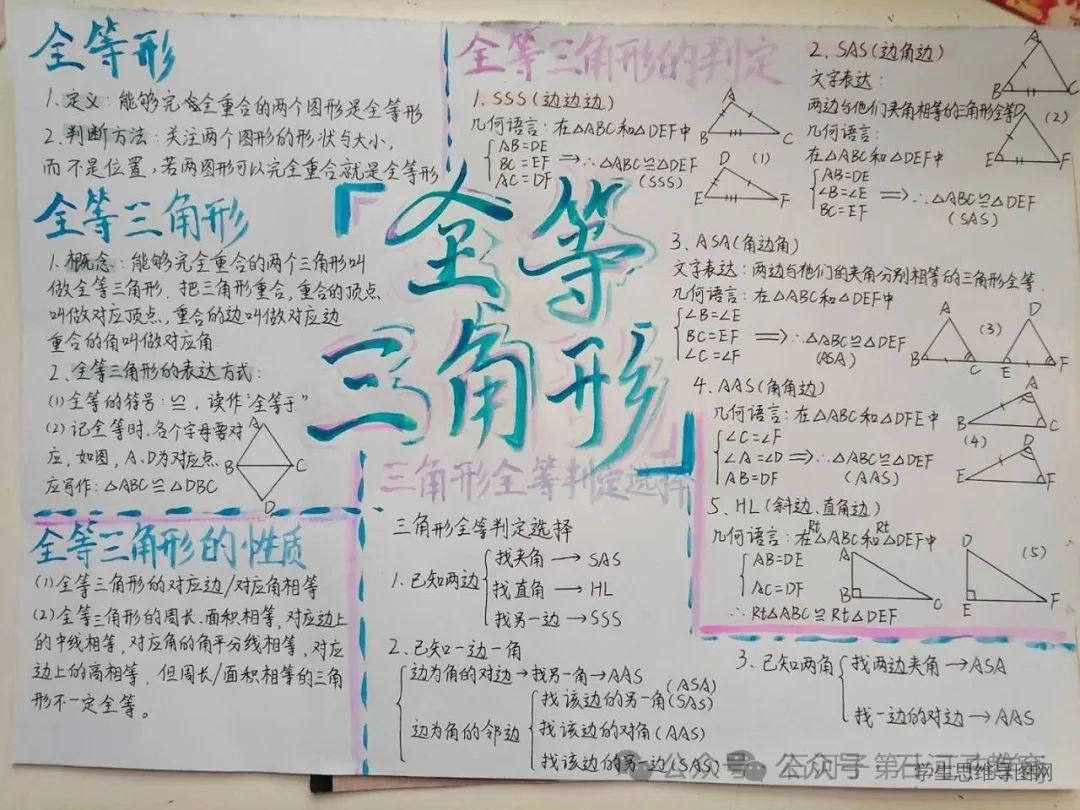 全等形
1. 定义：能够完全重合的两个图形是全等形
2. 判断方法：关注两个图形的形状与大小，
而不是位置，若两图形可以完全重合就是全等形
全等三角形
1. 概念：能够完全重合的两个三角形叫
做全等三角形．把三角形重合，重合的顶点
叫做对应顶点，重合的边叫做对应边
重合的角叫做对应角
2. 全等三角形的表达方式：
(1) 全等的符号：≌，读作“全等于”
(2) 记全等时，各个字母要对
应，如图，A、D为对应点
应写作：△ABC≌△DBC
A
B
C
D
全等三角形的性质
(1) 全等三角形的对应边/对应角相等
(2) 全等三角形的周长、面积相等，对应边上
的中线相等，对应角的角平分线相等，对应
边上的高相等．但周长/面积相等的三角
形不一定全等。
「全等
三角形」
全等三角形的判定
1. SSS (边边边)
几何语言：在△ABC和△DEF中
AB=DE
BC=EF ⇒ ∴△ABC≌△DEF
AC=DF (SSS)
A
B
C
D (1)
E
F
2. SAS (边角边)
文字表达：
两边与他们夹角相等的三角形全等
几何语言：
在△ABC和△DEF中
AB=DE
∠B=∠E ⇒ ∴△ABC≌△DEF
BC=EF (SAS)
A
B
C
D (2)
E
F
3. ASA (角边角)
文字表达：两边与他们的夹角分别相等的三角形全等．
几何语言：在△ABC和△DEF中
∠B=∠E
BC=EF ⇒ ∴△ABC≌△DEF
∠C=∠F (ASA)
A (3) D
B C E F
4. AAS (角角边)
几何语言：在△ABC和△DFE中
∠C=∠F
∠A=∠D ⇒ ∴△ABC≌△DEF
AB=DF (AAS)
A
B C
(4) D
E F
5. HL (斜边、直角边)
几何语言：在Rt△ABC和Rt△DEF中
AB=DE
AC=DF
∴Rt△ABC≌Rt△DEF
A
B C
D (5)
E F
三角形全等判定选择
三角形全等判定选择
1. 已知两边
找夹角→SAS
找直角→HL
找另一边→SSS
2. 已知一边一角
边为角的对边→找另一角→AAS
边为角的邻边
(ASA)
找该边的另一角(SAS)
找该边的对角(AAS)
找该边的另一边(SAS)
3. 已知两角
找两边夹角→ASA
找一边的对边→AAS
公众号
公众号
学生思维导图网